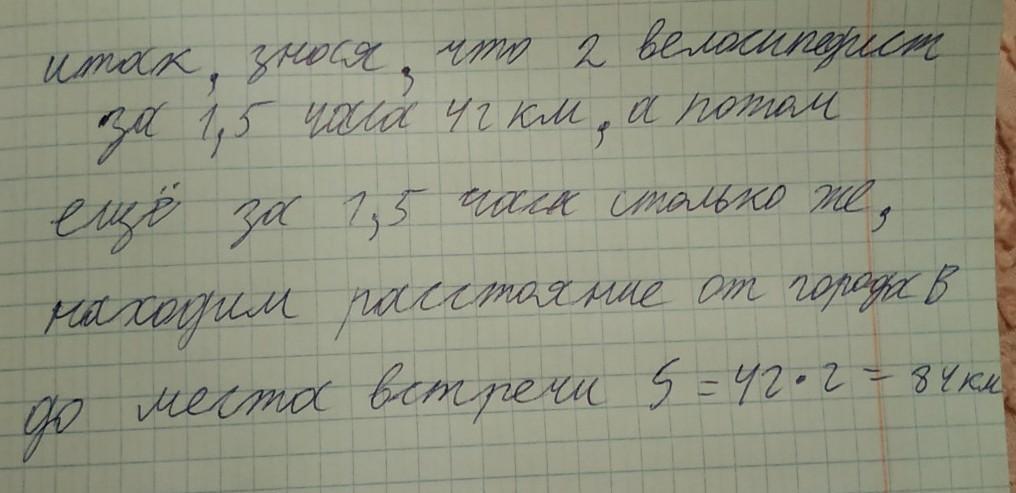 итак, зная, что 2 велосипедист
за 1,5 часа 42 км, а потом
ещё за 1,5 часа столько же,
находим расстояние от города В
до места встречи S = 42 • 2 = 84 км